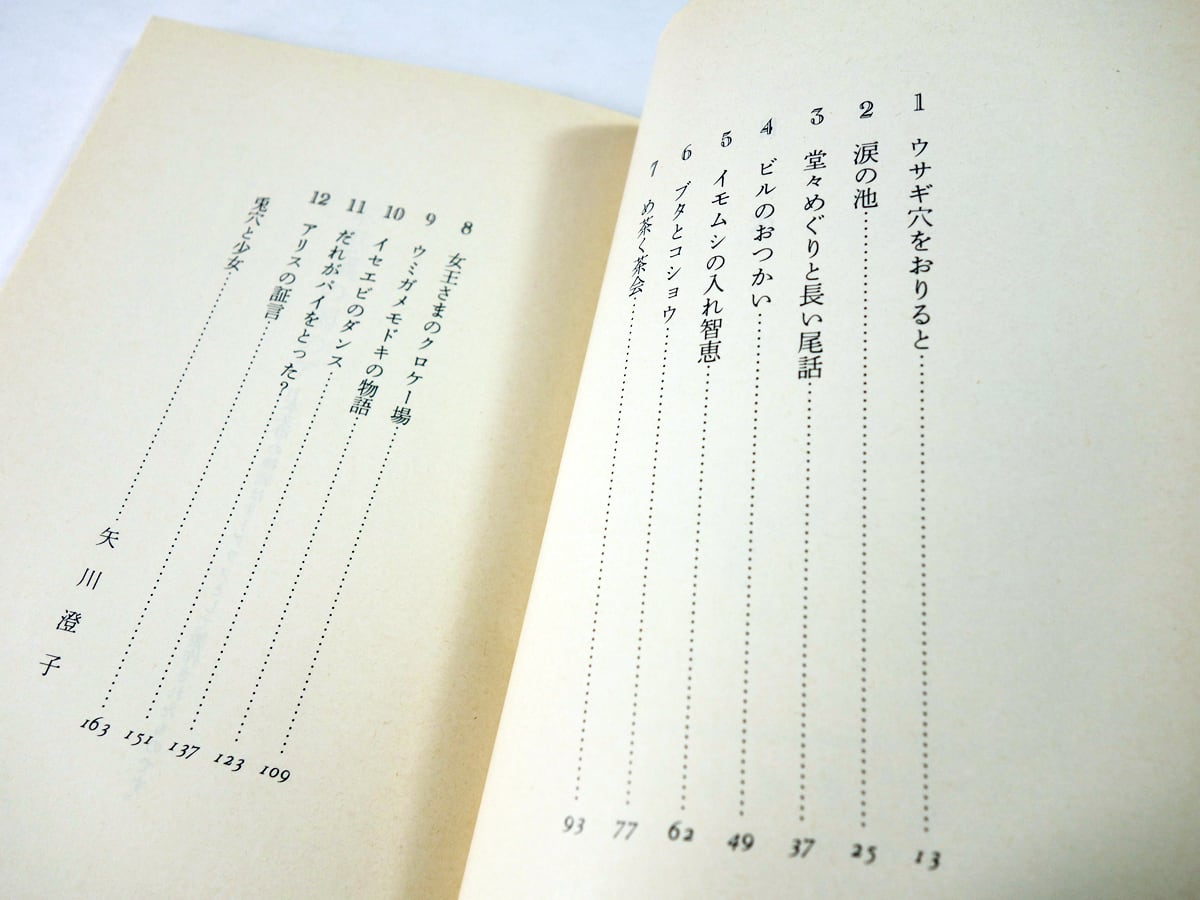 1 ウサギ穴をおりると……13
2 涙の池……25
3 堂々めぐりと長い尾話……37
4 ビルのおつかい……49
5 イモムシの入れ智恵……62
6 ブタとコショウ……77
7 め茶く茶会……93
8 女王さまのクロケー場……109
9 ウミガメモドキの物語……123
10 イセエビのダンス……137
11 だれがパイをとった？……151
12 アリスの証言……163
兎穴と少女……矢川澄子